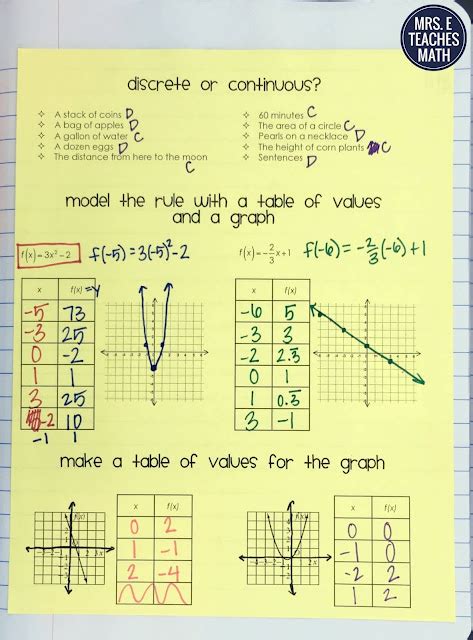 MRS. E
TEACHES
MATH
discrete or continuous?
❖ A stack of coins D
❖ A bag of apples D
❖ A gallon of water C
❖ A dozen eggs D
❖ The distance from here to the moon C
❖ 60 minutes C
❖ The area of a circle C
❖ Pearls on a necklace D
❖ The height of corn plants C
❖ Sentences D
model the rule with a table of values
and a graph
f(x)=3x²-2 f(-5)=3(-5)²-2
x f(x) =y
-5 73
-3 25
0 -2
1 1
3 25
-2 10
-1 1
f(x)=-2/3x+1 f(-6)=-2/3(-6)+1
x f(x)
-6 5
-3 3
-2 2.3̅
0 1
1 0.3̅
3 -1
make a table of values for the graph
f(x)
x
x f(x)
0 2
1 -1
2 -4
f(x)
x
x f(x)
0 0
-1 0
-2 2
1 2